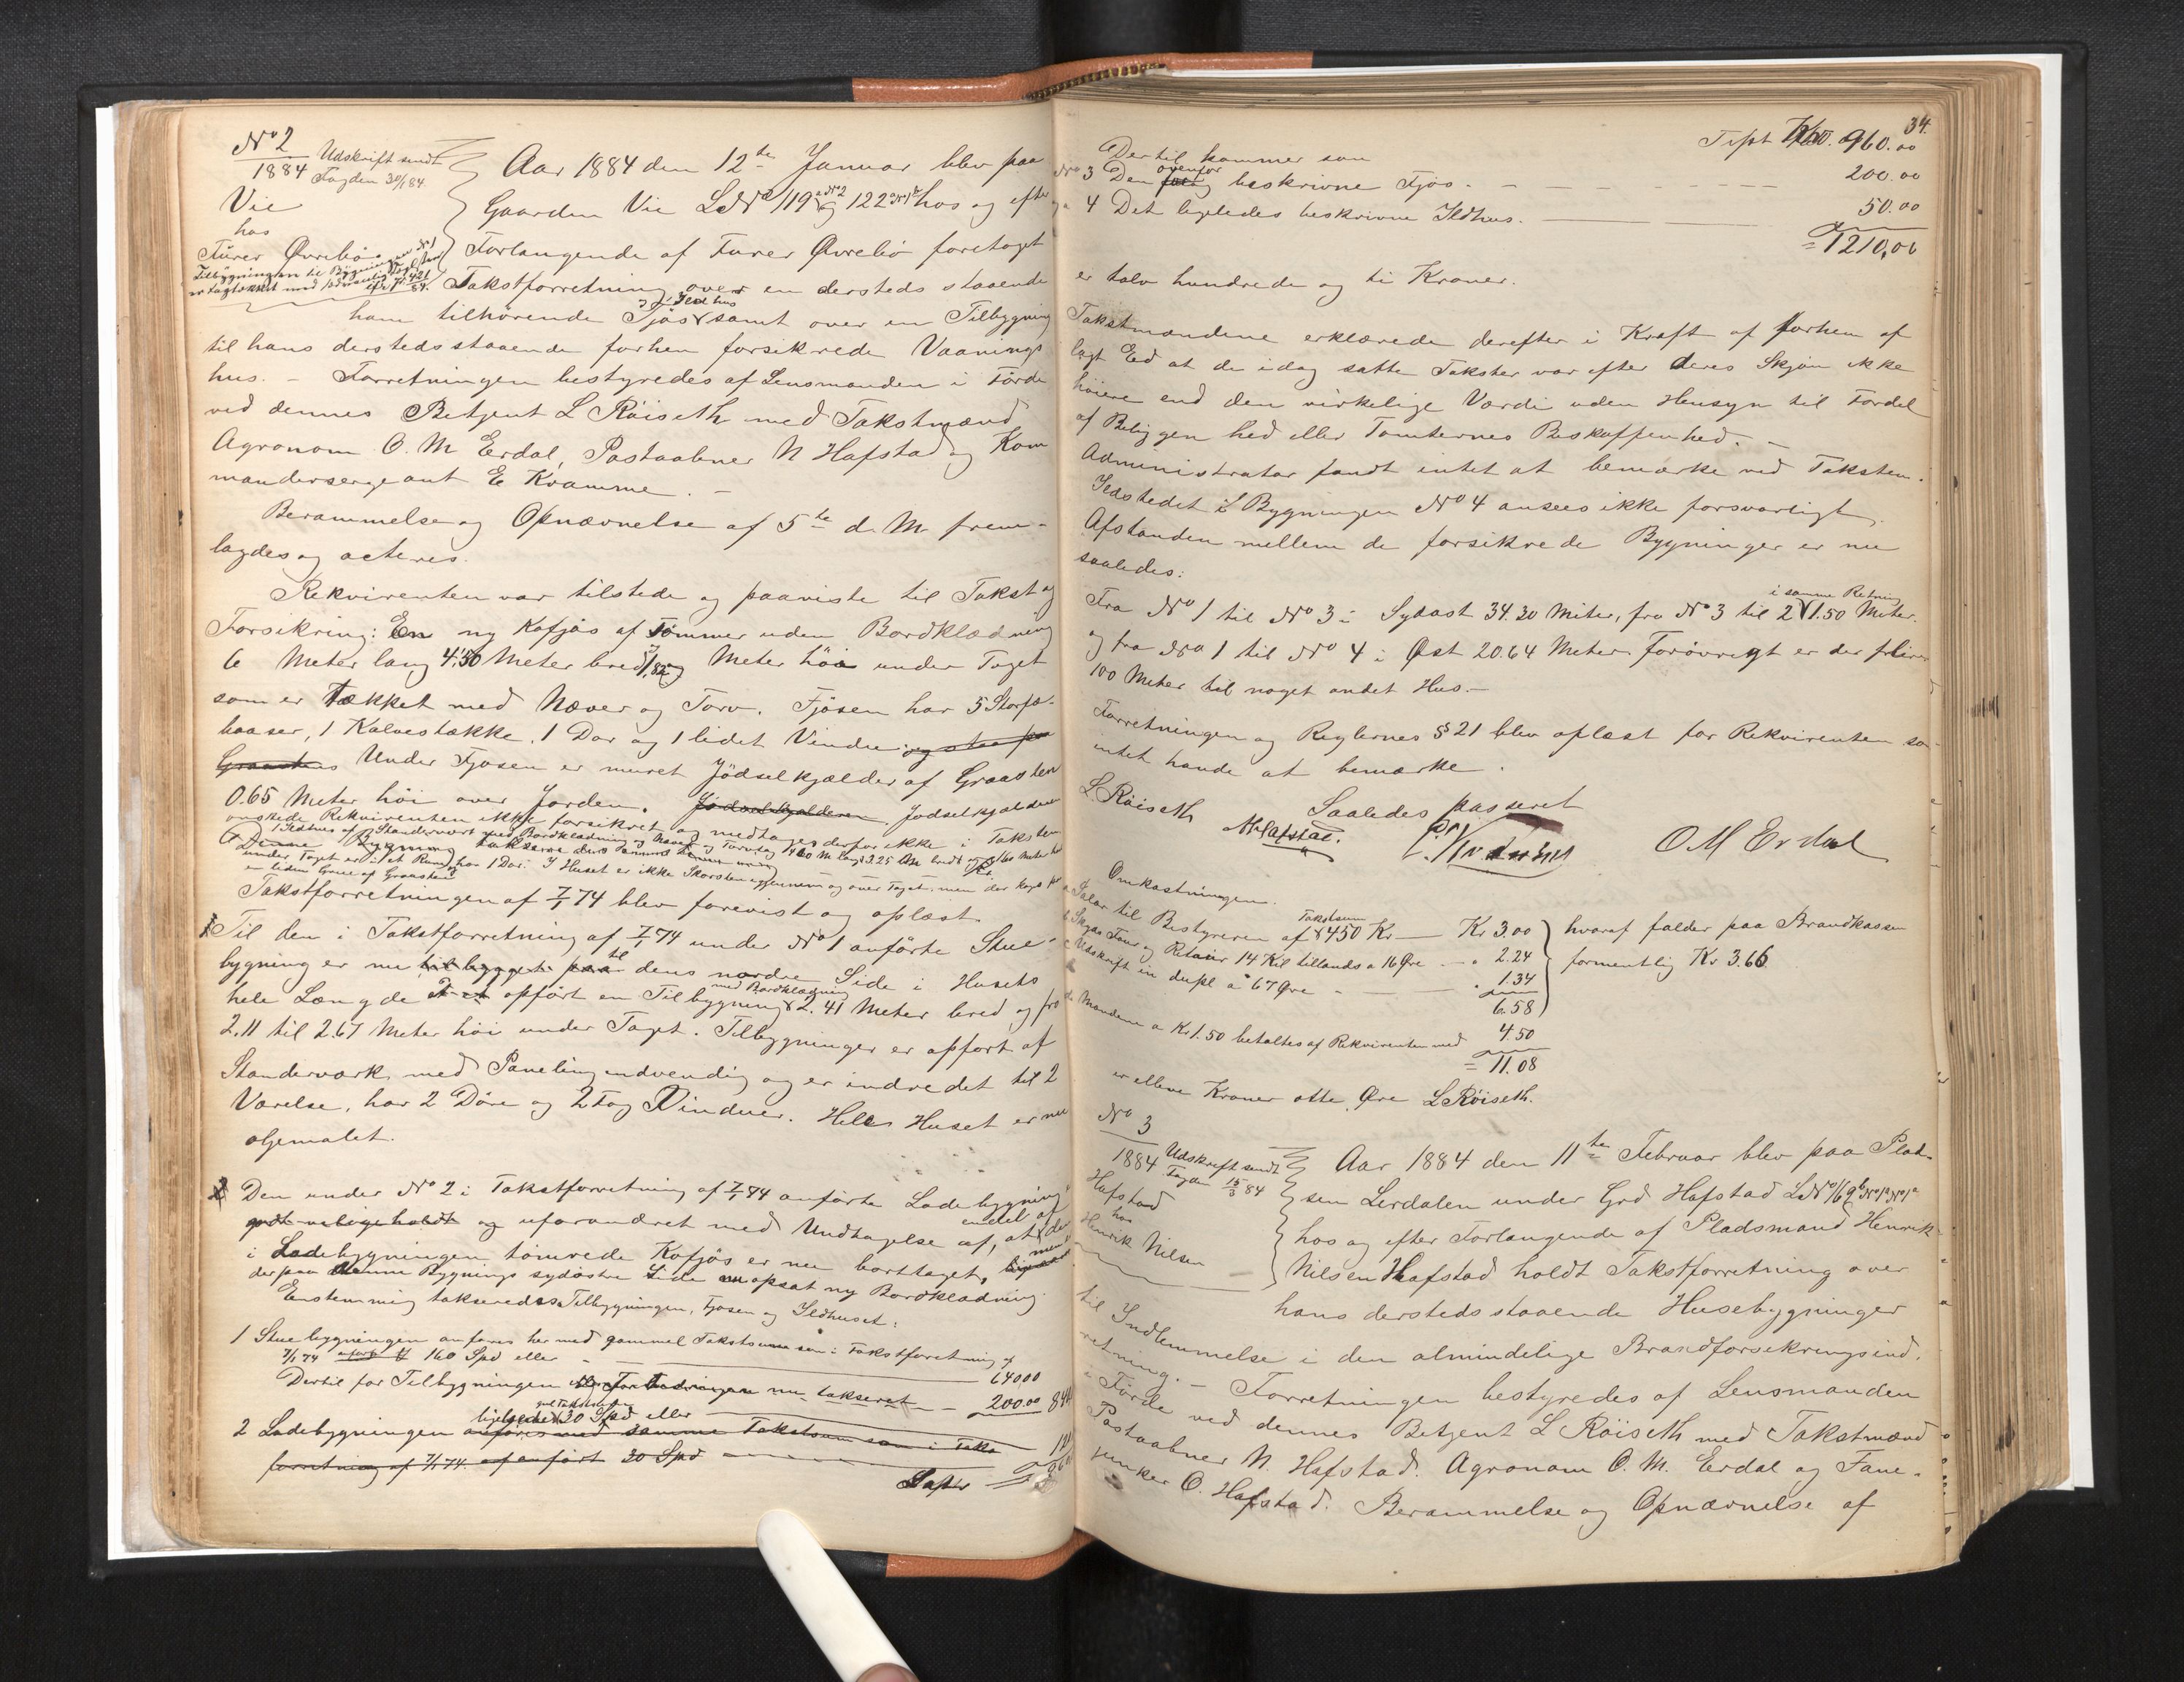 No 2
1884
Udskrift sendt
Fogden 30/1 84.
Vie
hos
Furer Øvrebø
Aar 1884 den 12te Januar blev paa
Gaarden Vie LNo 119 a No 2 og 122 hos og efter
Forlangende af Furer Øvrebø foretaget
Takstforretning over en dersteds staaende
ham tilhørende Fjøs og Ildhus samt over en Tilbygning
til hans dersteds staaende forhen forsikrede Vaanings
hus. – Forretningen bestyredes af Lensmanden i Førde
ved dennes Betjent L Røiseth med Takstmænd
Agronom O. M Erdal, Postaabner N Hafstad og Kom
mandersergeant E Kvamme. –
Berammelse og Opnævnelse af 5te d. M. frem-
lagdes og acteres.
Rekvirenten var tilstede og paaviste til Takst og
Forsikring: En ny Kofjøs af Tømmer uden Bordklædning
6 Meter lang 4.30 Meter bred og 1,82 Meter høi under Taget
som er Tækket med Næver og Torv. Fjøsen har 5 Storfæ-
baaser, 1 Kalvestække, 1 Dør og 1 lidet Vindu og staar paa
Graasten Under Fjøsen er muret Jødselkjælder af Graasten
0.65 Meter høi over Jorden. Jødselkjælderen Jødselkjælderen
ønskede Rekvirenten ikke forsikret og medtages derfor ikke i Taksten
1 Ildhus af Standerværk med Bordklædning og Næver og Torvtag
under Taget er i et Rum og har 1 Dør. I Huset er ikke Skorsten igjennem og over Taget, men der
en liden Grue af Graasten
Takstforretningen af 7/1 74 blev forevist og oplæst
1 Til den i Takstforretning af 7/1 74 under No 1 anførte Stue-
bygning er nu tilbygget paa til dens nordre Side i Husets
hele Længde opført en Tilbygning med Bordklædning 2.41 Meter bred og fra
2.11 til 2.67 Meter høi under Taget. Tilbygninger er opført af
Standerværk med Paneling indvendig og er indredet til 2
Værelse, har 2 Døre og 2 Fag Vinduer. Hele Huset er nu
oljemalet.
2 Den under No 2 i Takstforretning af 7/1 74 anførte Ladebygning
godt vedligeholdt og uforandret med Undtagelse af, at endel af den
i Ladebygningen tømrede Kofjøs er nu borttaget, men
der paa denne Bygnings sydøstre Side opsat ny Bordklædning.
Enstemmig takseredes Tilbygningen, Fjøsen og Ildhuset:
1 Stuebygningen anføres her med gammel Takstsum som i Takstforretning af
7/1 74 anført 160 Spd eller – 640 00
Dertil for Tilbygningen nu takseret – 200.00 840
2 Ladebygningen anføres med samme Takstsum som i Takst
ligeledes 30 Spd eller
forretning af 7/1 74 anført 30 Spd
Later
34.
Tspt 960.00
Dertil kommer som
No 3 Den ovenfor beskrivne Fjøs. – 200.00
4 Det ligeledes beskrivne Ildhus. – 50.00
= 1210,00
er tolv hundrede og ti Kroner.
Takstmændene erklærede derefter i Kraft af forhen af
lagt Eed at de idag satte Takster var efter deres Skjøn ikke
høiere end den virkelige Værdi uden Hensyn til Fordel
af Beliggenhed eller Tomternes Beskaffenhed. –
Administrator fandt intet at bemærke ved Taksten.
Ildstedet i Bygningen No 4 ansees ikke forsvarligt,
Afstanden mellem de forsikrede Bygninger er nu
saaledes:
Fra No 1 til No 3 i Sydost 34.30 Meter, fra No 3 til 2 i samme Retning 1.50 Meter.
og fra No 1 til No 4 i Øst 20.64 Meter. Forøvrigt er der flere
100 Meter til noget andet Hus. –
Forretningen og Reglernes § 21 blev oplæst for Rekvirenten som
intet havde at bemærke.
Saaledes passeret
L. Røiseth N Hafstad. E. Kvamme O M Erdal
Omkostningen.
a Salær til Bestyreren af Takstsum 450 Kr – Kr 3.00
b Skyds Tour og Retour 14 Kil tillands a 16 Øre – 2.24
c Udskrift in dupl a 67 Øre – 1.34
6.58
hvoraf falder paa Brandkassen
formentlig Kr 3.66
d Mændene a Kr 1.50 betaltes af Rekvirenten med 4.50
= 11.08
er elleve Kroner otte Øre L Røiseth.
No 3
1884
Udskrift sendt
Fogden 15/3 84
Hafstad
hos
Henrik Nilsen
Aar 1884 den 11te Februar blev paa Plad-
sen Lerdalen under Grd Hafstad LNo 169
hos og efter Forlangende af Pladsmand Henrik
Nilsen Hafstad holdt Takstforretning over
hans dersteds staaende Husebygninger
til Indlemmelse i den almindelige Brandforsikringsind-
retning. – Forretningen bestyredes af Lensmanden
i Førde ved dennes Betjent L Røiseth med Takstmænd
Postaabner N. Hafstad. Agronom O. M. Erdal og Fane-
junker O. Hafstad. Berammelse og Opnævnelse af